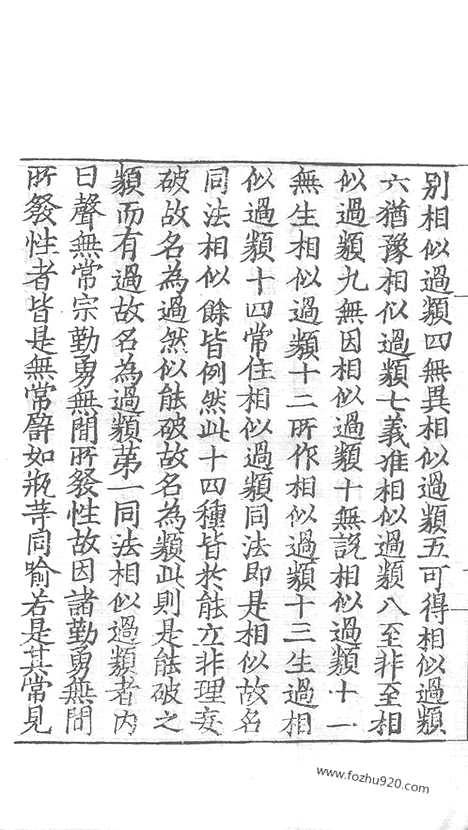 別相似過類四無異相似過類五可得相似過類
六猶豫相似過類七義准相似過類八至非至相
似過類九無因相似過類十無說相似過類十一
無生相似過類十二所作相似過類十三生過相
似過類十四常住相似過類同法即是相似故名
同法相似餘皆例然此十四種皆於能立非理妄
破故名為過然似能破故名為類此則是能破之
類而有過故名為過類第一同法相似過類者內
曰聲無常宗勤勇無間所發性故因諸勤勇無間
所發性者皆是無常譬如瓶等同喻若是其常見
www.fozhu920.com